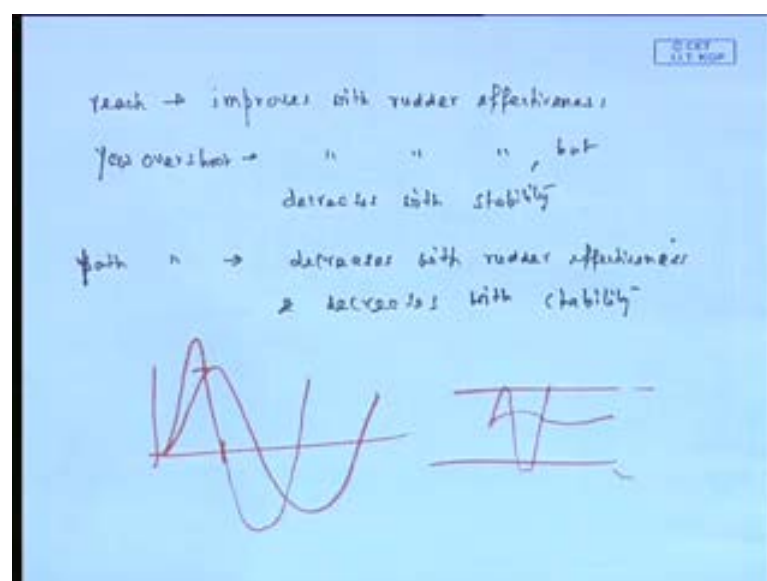 © CET
I.I.T. KGP
reach → improves with rudder effectiveness
Yaw overshoot → " " " , but
decreases with stability
path " → decreases with rudder effectiveness
& decreases with stability